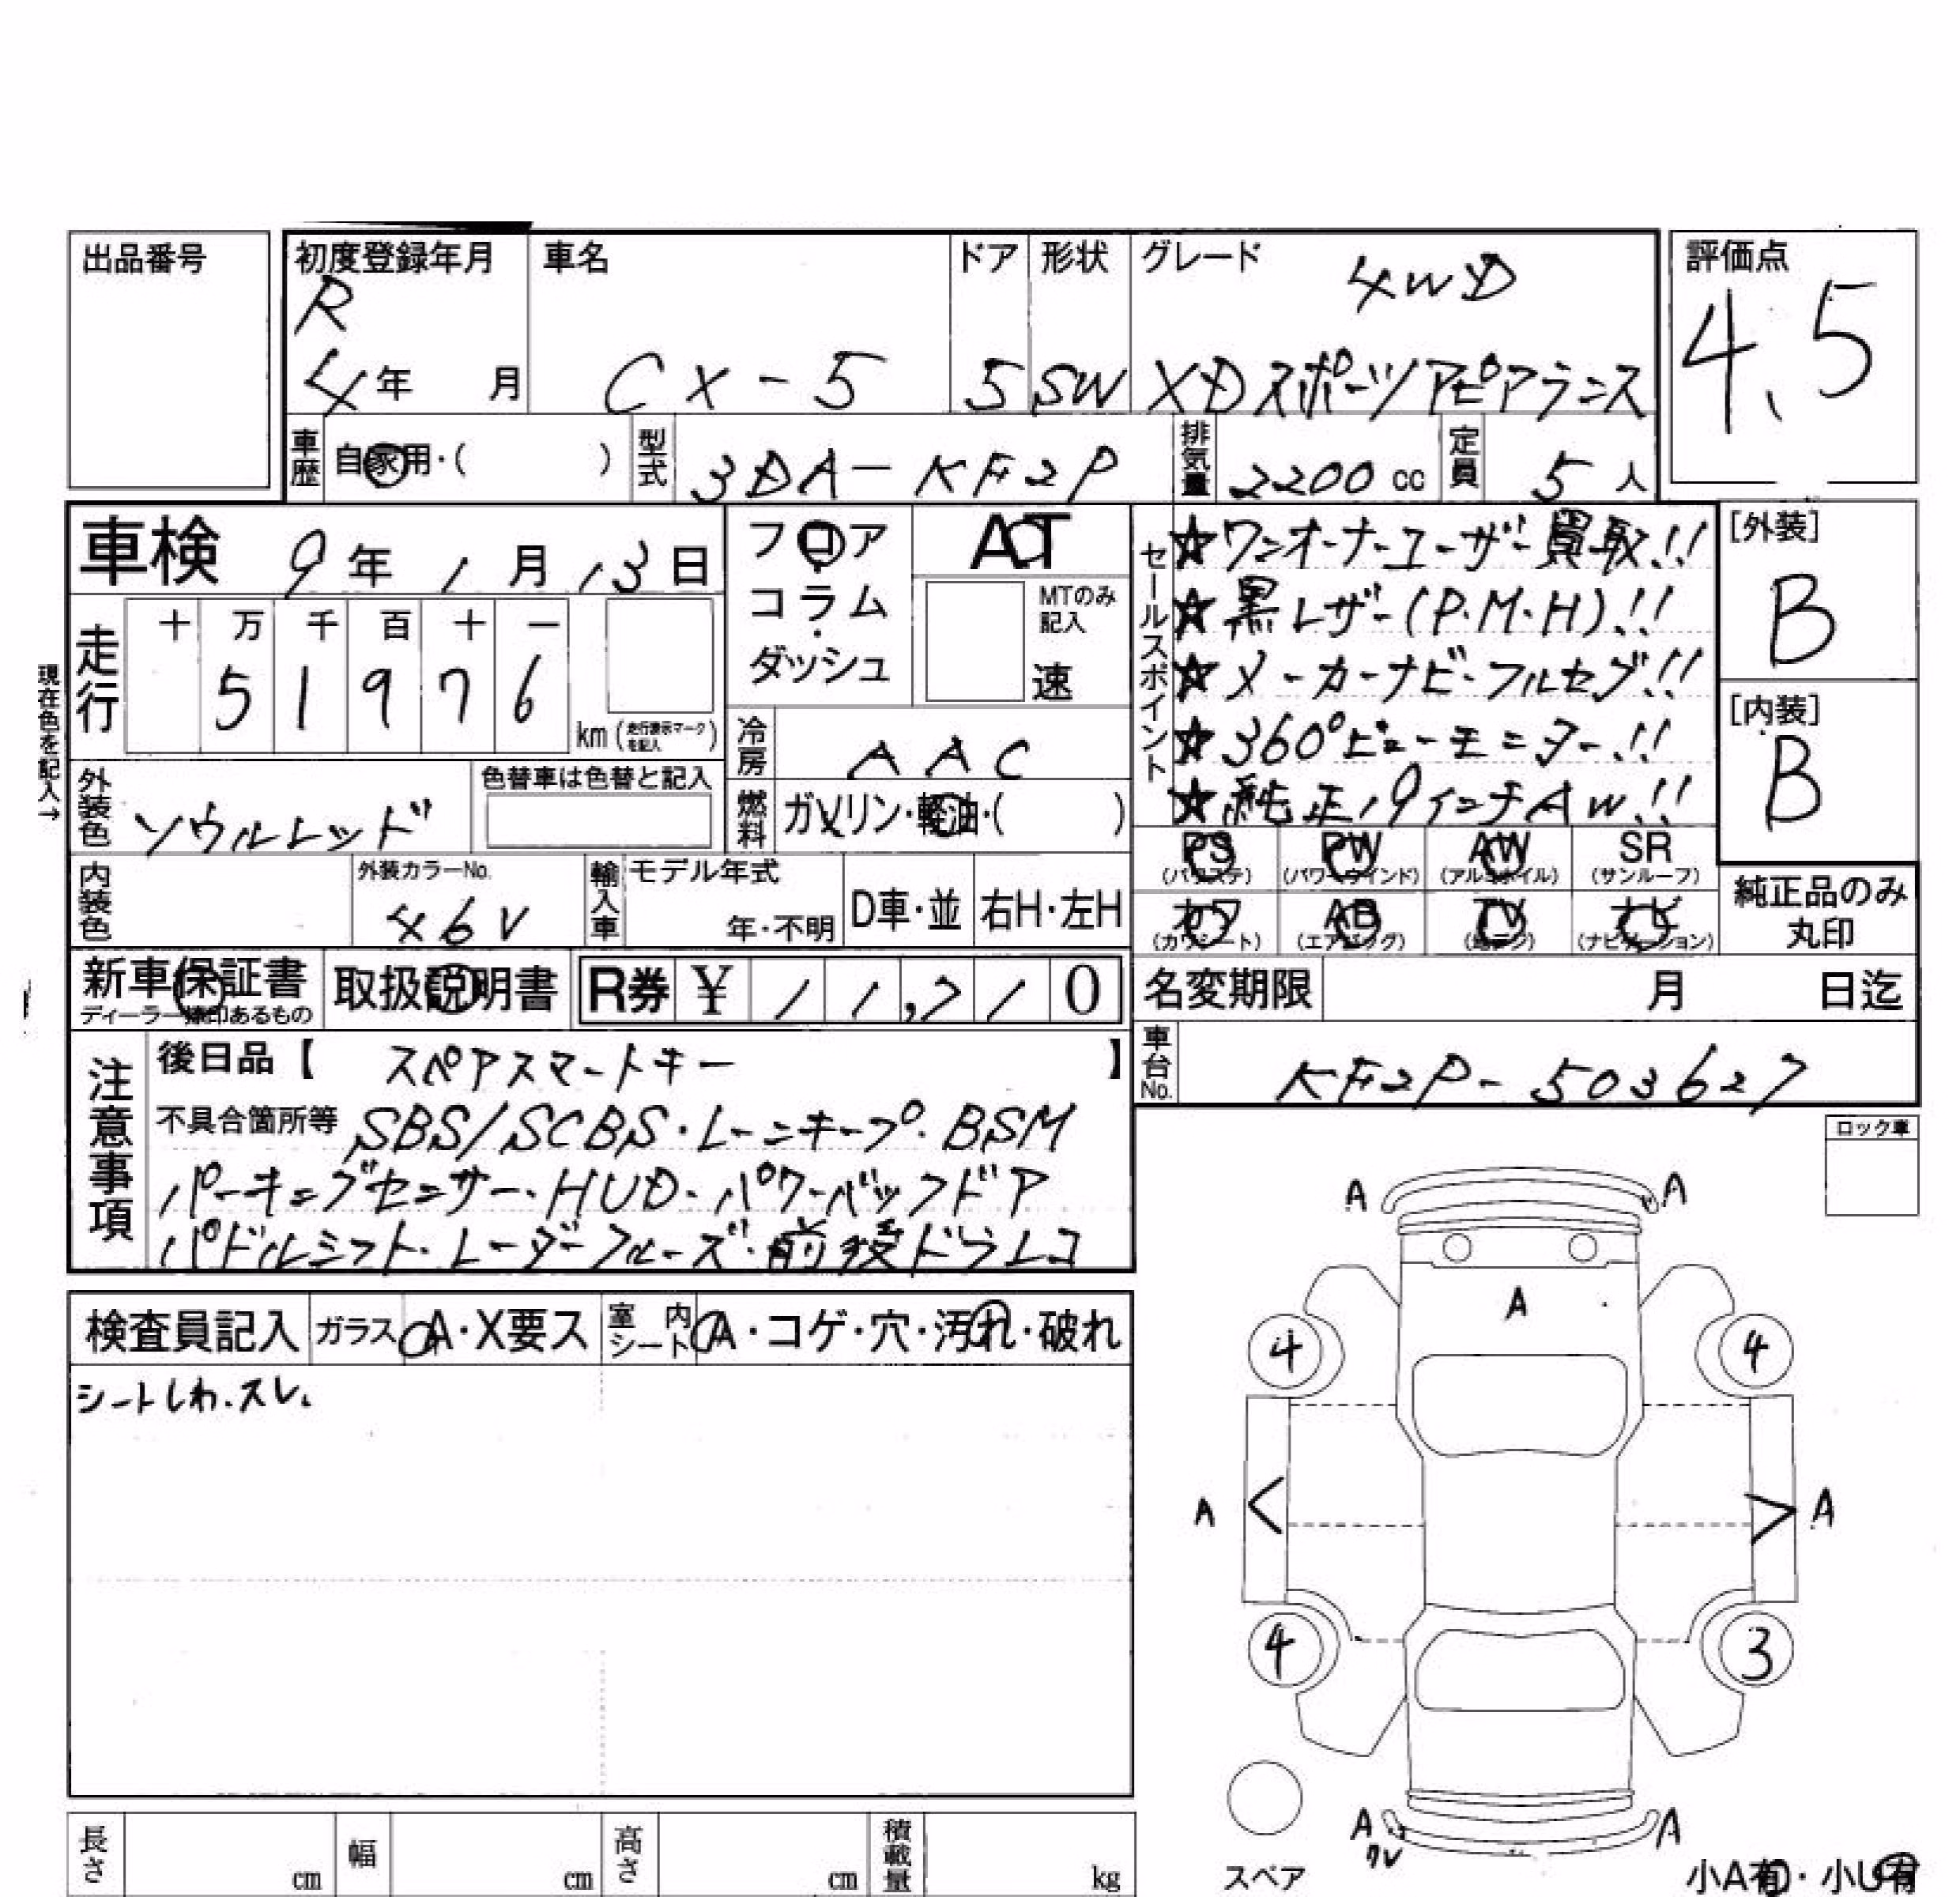 出品番号
初度登録年月 車名 ドア 形状 グレード 4WD 評価点
R
4年 月 CX-5 5 SW XDスポーツアピアランス 4.5
車歴 自家用・( ) 型式 3DA-KF2P 排気量 2200 cc 定員 5 人
車検 9年 1月 13日 フロア・コラム・ダッシュ AT
MTのみ記入 速
セールスポイント ★ワンオーナーユーザー買取!!
★黒レザー(P.M.H)!!
★メーカーナビ・フルセグ!!
★360°ビューモニター!!
★純正19インチAW!!
[外装] B
[内装] B
現在色を記入→
走行 十 万 千 百 十 一
5 1 9 7 6 km(走行表示マークを記入)
冷房 AAC
外装色 ソウルレッド 色替車は色替と記入
燃料 ガソリン・軽油・( )
PS PW AW SR
(パワステ) (パワーウインド) (アルミホイル) (サンルーフ)
カワ AB TV ナビ
(カワシート) (エアバッグ) (地デジ) (ナビゲーション)
純正品のみ丸印
内装色 外装カラーNo. 46V 輸入車 モデル年式 年・不明 D車・並 右H・左H
新車保証書 取扱説明書 R券 ¥ 11,710 名変期限 月 日迄
ディーラー捺印あるもの
車台No. KF2P-503627
注意事項 後日品【 スペアスマートキー 】
不具合箇所等 SBS/SCBS・レーンキープ・BSM
パーキングセンサー・HUD・パワーバックドア
パドルシフト・レーダークルーズ・前後ドラレコ
ロック車
検査員記入 ガラス A・X要ス 室内シート A・コゲ・穴・汚れ・破れ
シートしわ.スレ.
A A
A
4 4
A A
4 3
A A
スペア
小A有・小U有
長さ cm 幅 cm 高さ cm 積載量 kg